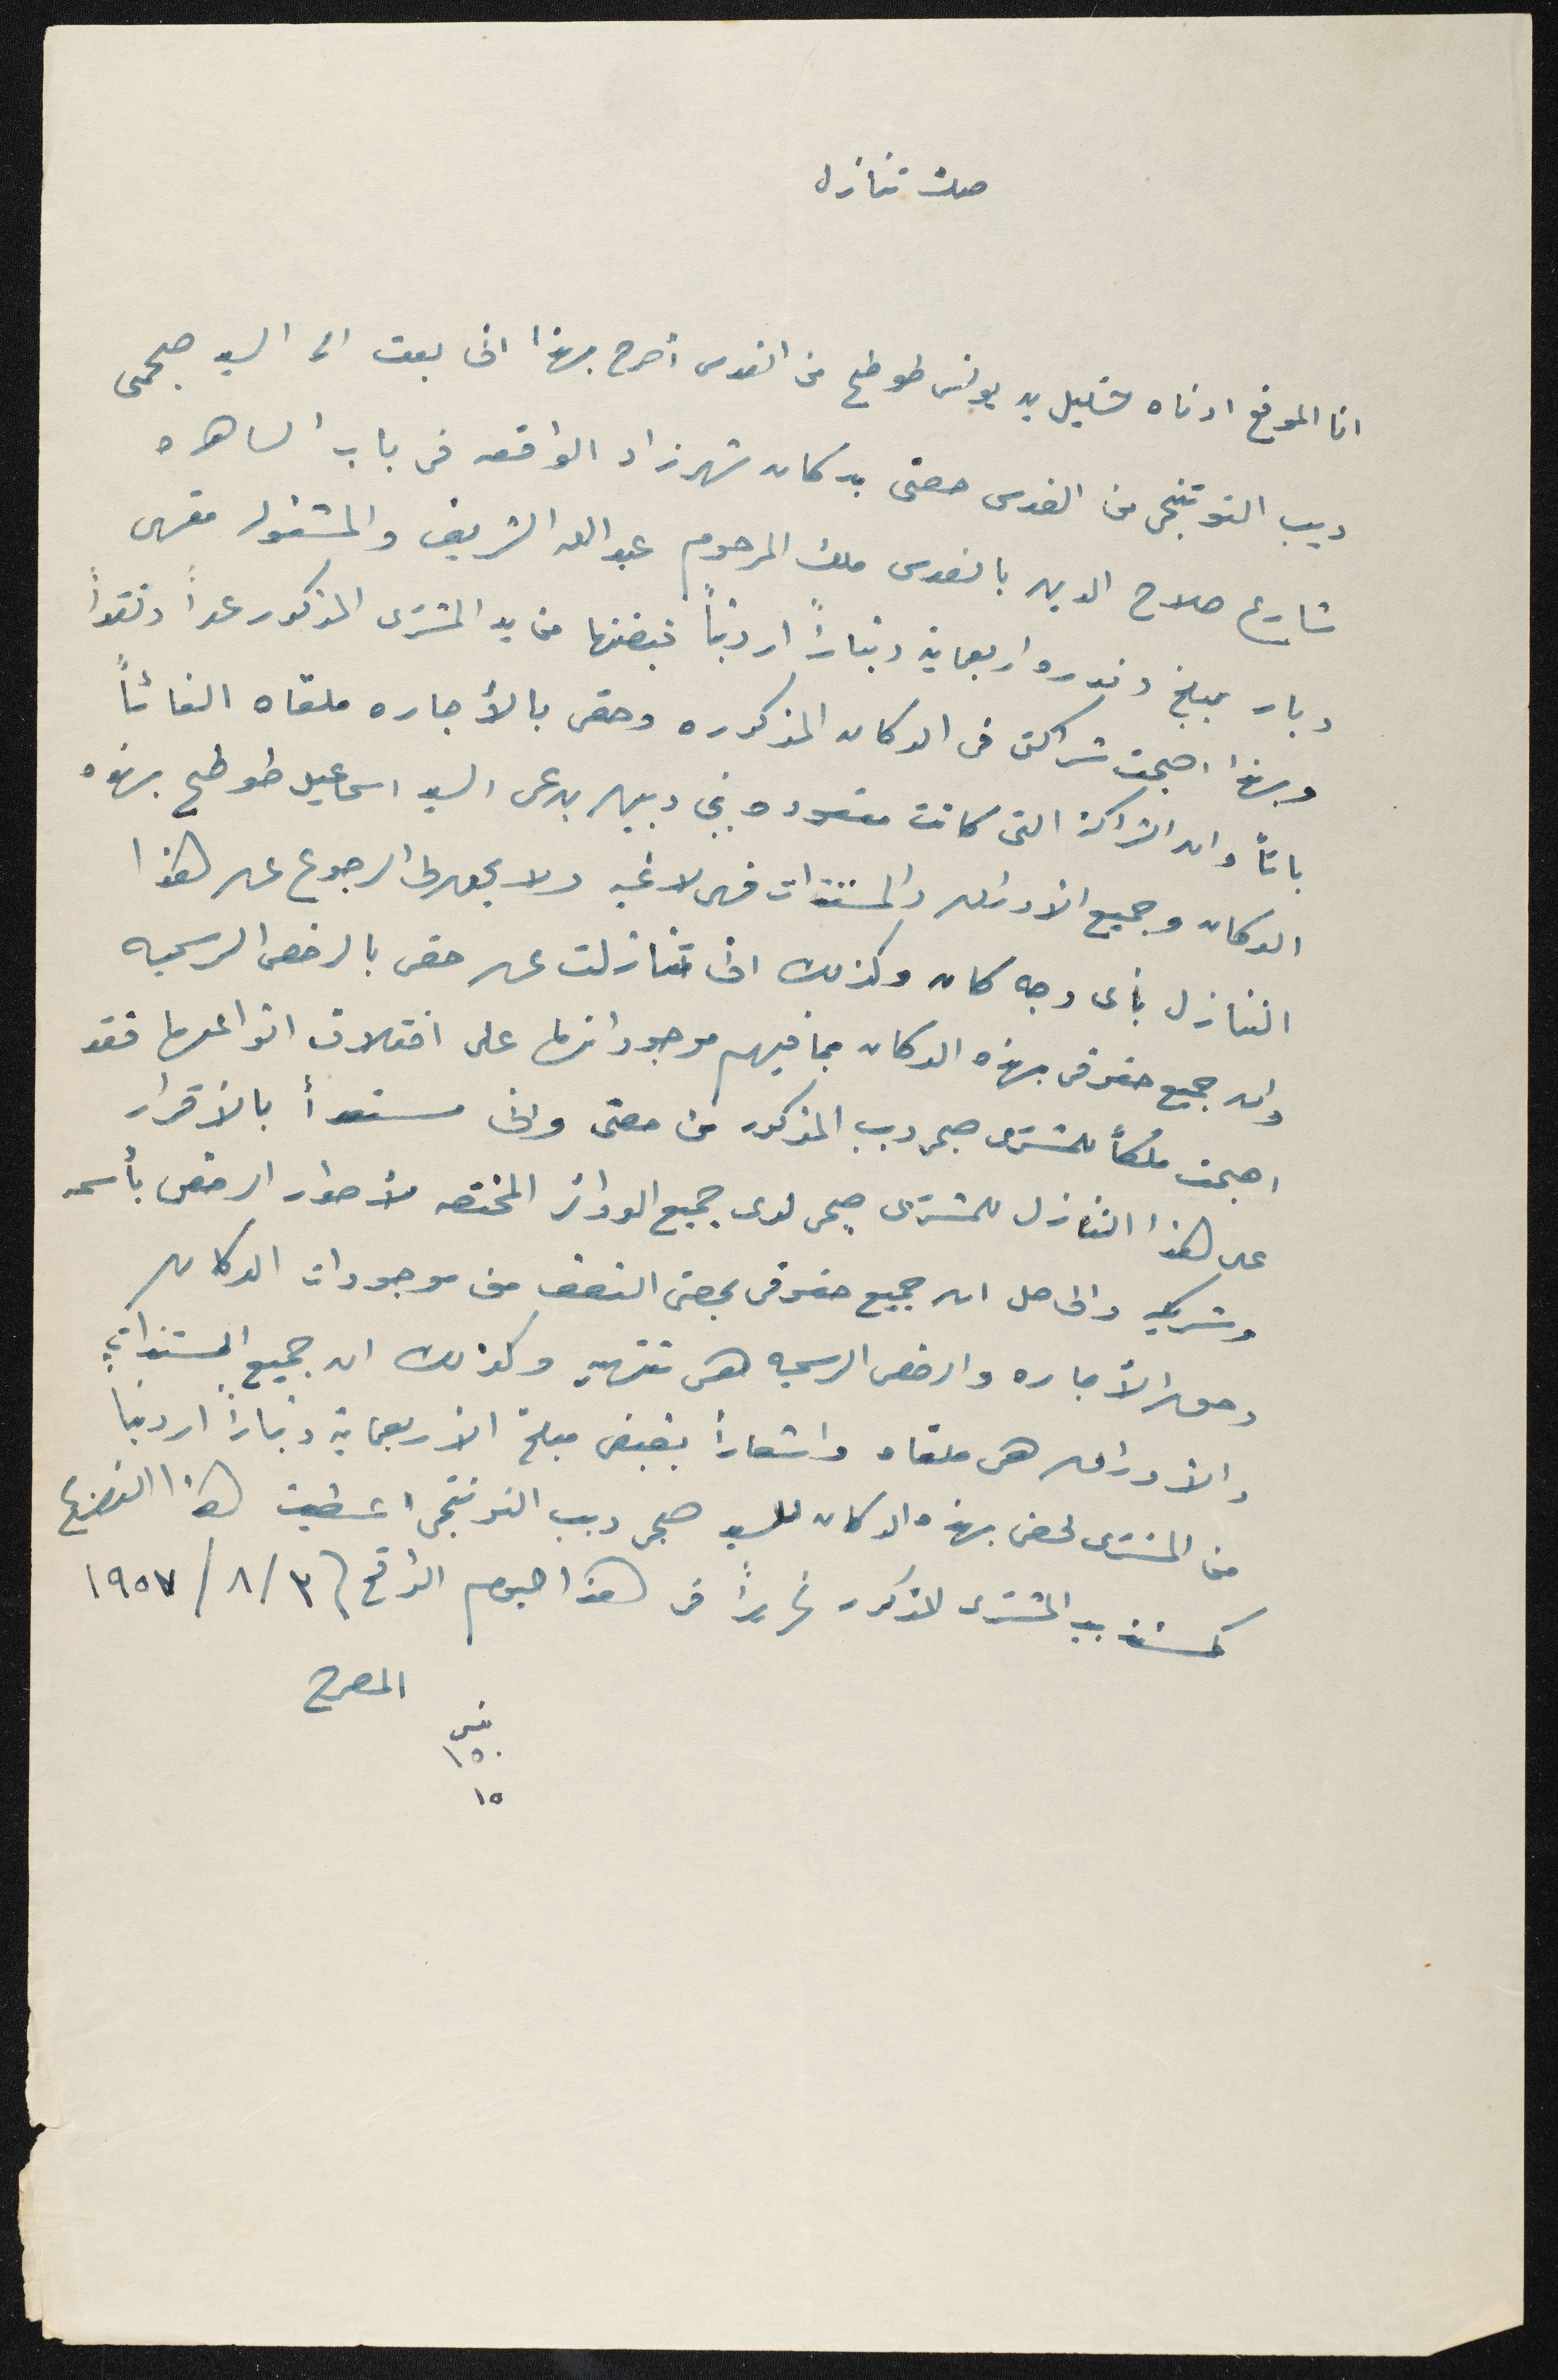 صك تنازل
انا الموقع ادناه خليل بد يونس طوطح من القدس أصرح بهذا انى بعت الى السيد صبحى
ديب التوتنجى من القدس حصتى بدكان شهرزاد الواقعه فى باب الساهره
شارع صلاح الدين بالقدس ملك المرحوم عبدالله الشريف والمشغوله مقهى
وبار بمبلغ وقدره اربعماية ديناراً اردنياً قبضتها من يد المشترى المذكور عداً ونقداً
وبهذا اصبحت شراكتى فى الدكان المذكوره وحقى بالأجاره ملغاه الغائاً
باتاً وان الشراكة التى كانت معقوده بينى وبين بدعى السيد اسماعيل طوطح بهذه
الدكان وجميع الأوراق والمستندات فهى لاغيه ولا يحق لى الرجوع عن هذا
التنازل بأى وجه كان وكذلك انى تنازلت عن حقى بالرخص الرسميه
وان جميع حقوقى بهذه الدكان بما فيهم موجوداتها على اختلاف انواعها فقد
اصبحت ملكاً للمشترى صبحى ديب المذكور من حصتى وانى مستعداً بالأقرار
على هذا التنازل للمشترى صبحى لدى جميع الدوائر المختصه لأصدار الرخص بأسمه
وشريكه والحاصل ان جميع حقوقى بحصتى النصف من موجودات الدكان
وحق الأجاره والرخص الرسميه هى منتهيه وكذلك ان جميع المستندات
والأوراق هى ملغاه واشعاراً بقبض مبلغ الأربعماية ديناراً اردنياً
من المشترى لحصتى بهذه الدكان للسيد صبحى ديب التوتنجى اعطيت هذا التوقيع
كمستند بيد المشترى المذكور تحريراً فى هذا اليوم الواقع ٣/٨/١٩٥٧
المصرح
١٥٠
١٥